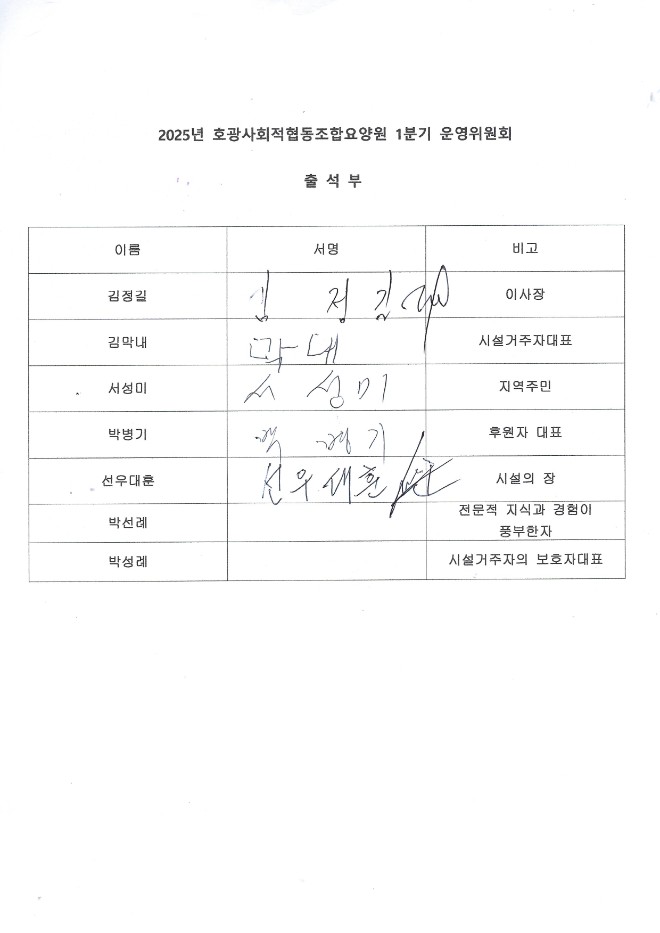 2025년 호광사회적협동조합요양원 1분기 운영위원회
출 석 부
이름 서명 비고
김정길 김 정 길 이사장
김막내 막 내 시설거주자대표
서성미 서 성 미 지역주민
박병기 박 병 기 후원자 대표
선우대훈 선우대훈 시설의 장
박선례 전문적 지식과 경험이
풍부한자
박성례 시설거주자의 보호자대표